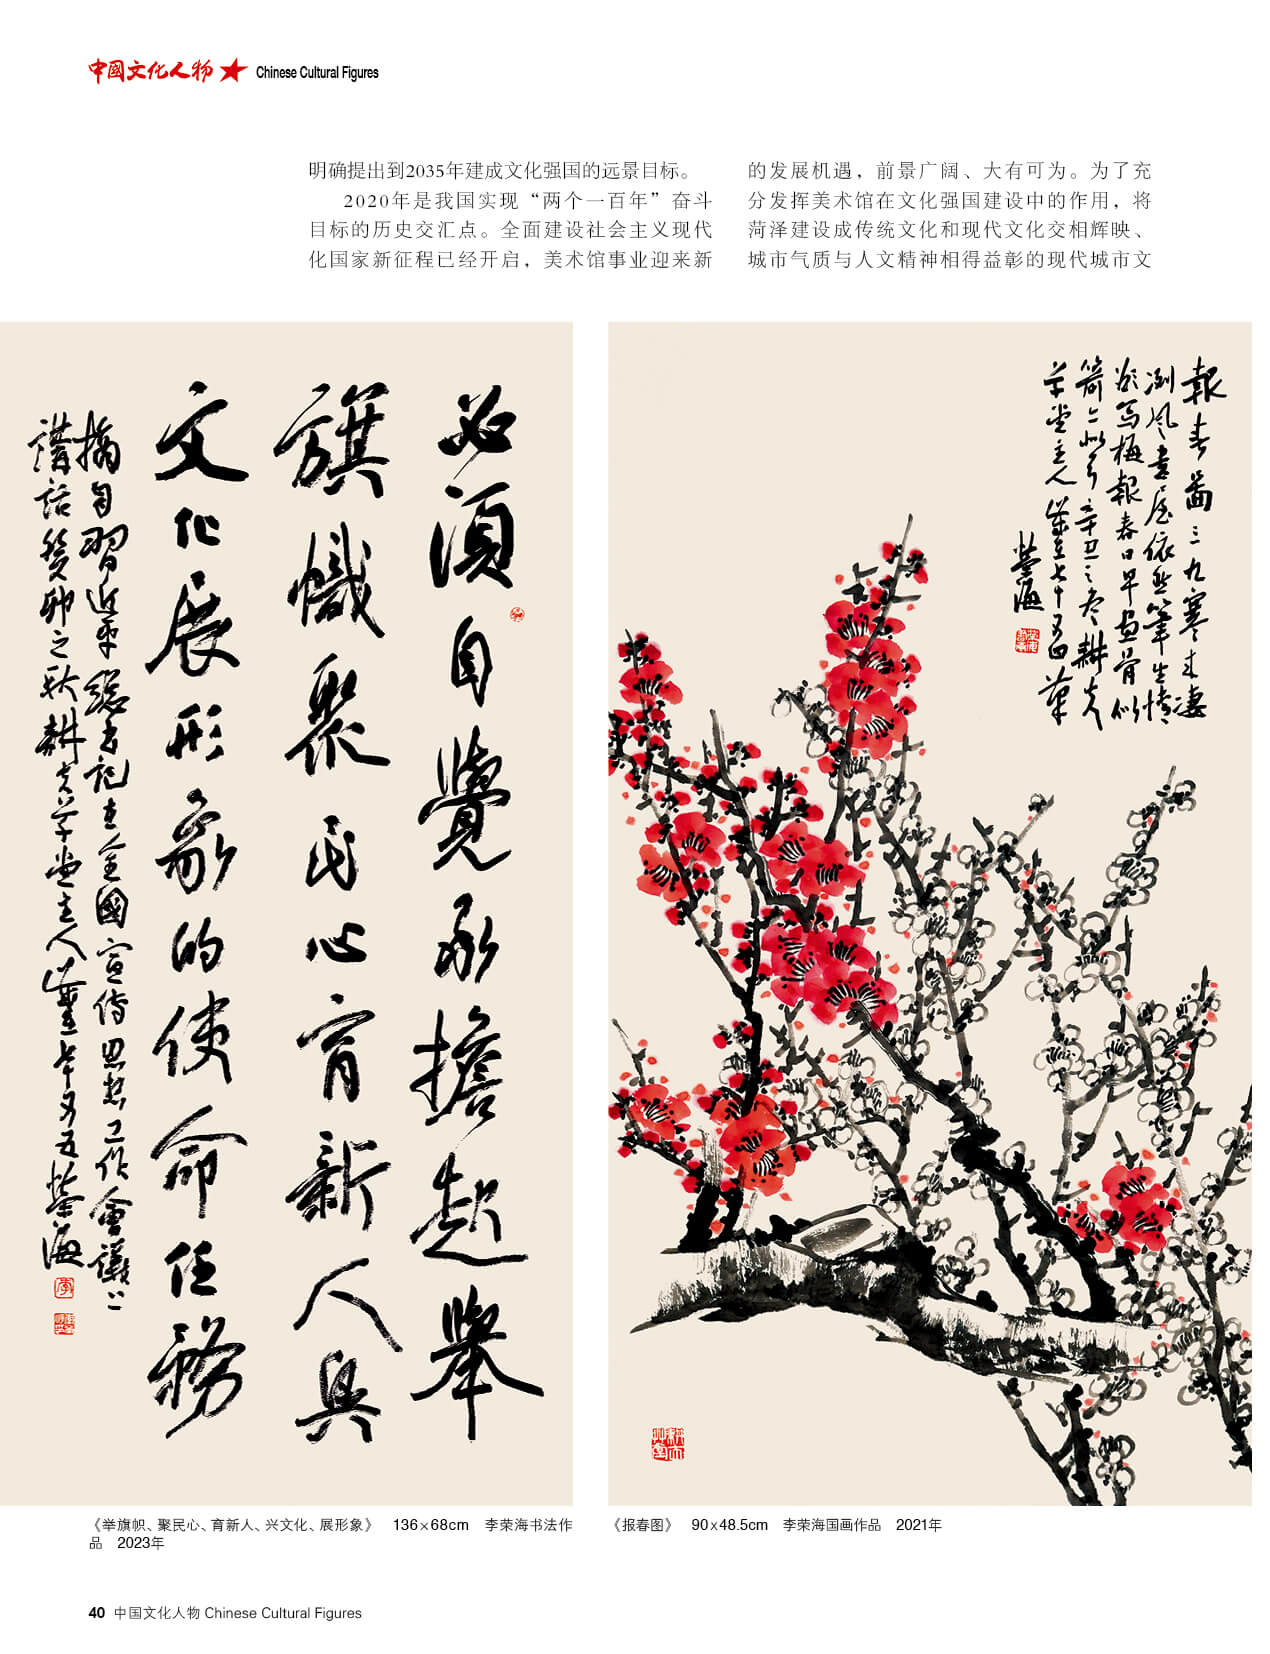 中國文化人物 Chinese Cultural Figures
明确提出到2035年建成文化强国的远景目标。
2020年是我国实现“两个一百年”奋斗
目标的历史交汇点。全面建设社会主义现代
化国家新征程已经开启，美术馆事业迎来新
的发展机遇，前景广阔、大有可为。为了充
分发挥美术馆在文化强国建设中的作用，将
菏泽建设成传统文化和现代文化交相辉映、
城市气质与人文精神相得益彰的现代城市文
必須自覺承擔起舉
旗幟聚民心育新人興
文化展形象的使命任務
摘自習近平總書記在全國宣傳思想工作會議上
講話癸卯之秋耕夫草堂主人歲在七十又五榮海
報春圖三九寒来凄
冽風書屋依然筆生情
欲写梅報春日早画骨似
耕夫
草堂主人
榮海
《举旗帜、聚民心、育新人、兴文化、展形象》 136×68cm 李荣海书法作
品 2023年
《报春图》 90×48.5cm 李荣海国画作品 2021年
40 中国文化人物 Chinese Cultural Figures